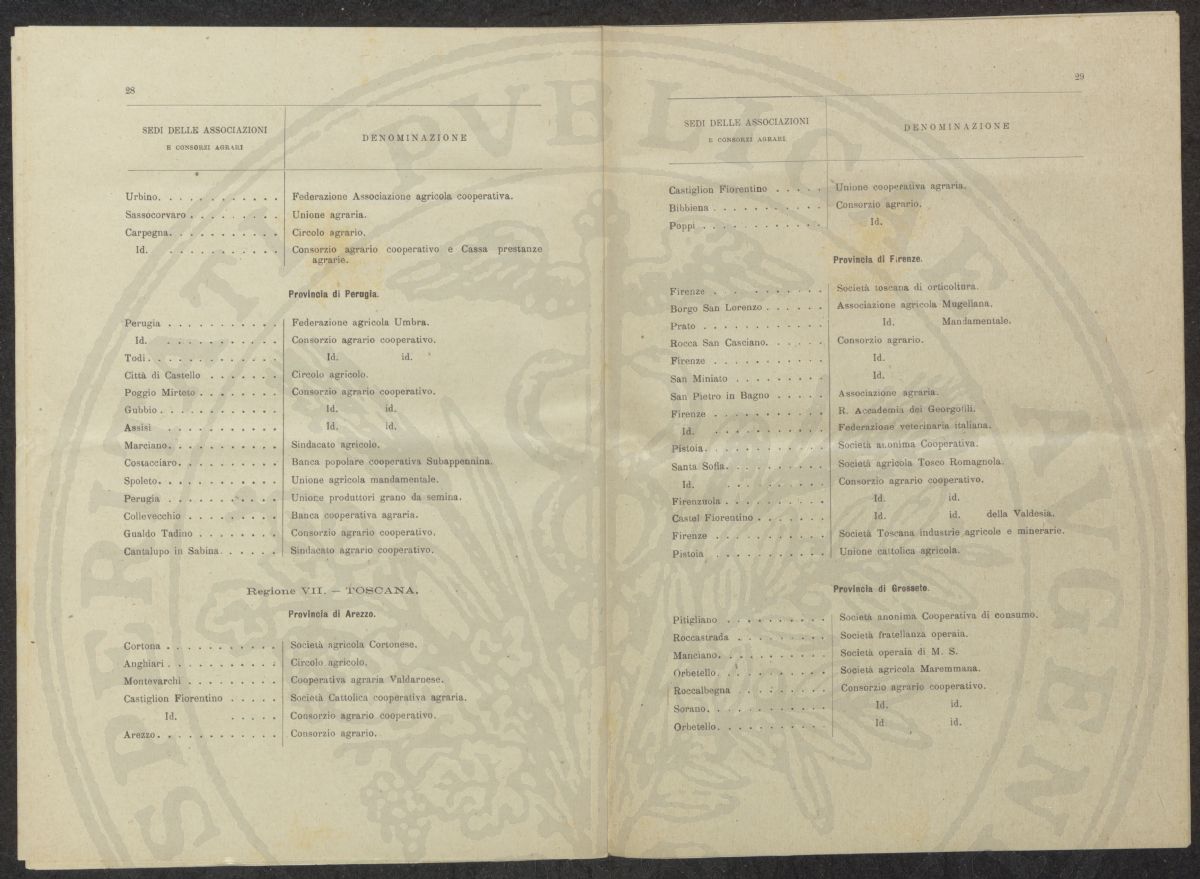 28
SEDI DELLE ASSOCIAZIONI
E CONSORZI AGRARI
DENOMINAZIONE
Urbino. . . . . . . . . . . . Federazione Associazione agricola cooperativa.
Sassocorvaro . . . . . . . . . Unione agraria.
Carpegna. . . . . . . . . . . Circolo agrario.
Id. . . . . . . . . . . . Consorzio agrario cooperativo e Cassa prestanze
agrarie.
Provincia di Perugia.
Perugia . . . . . . . . . . . Federazione agricola Umbra.
Id. . . . . . . . . . . . Consorzio agrario cooperativo.
Todi . . . . . . . . . . . . Id. id.
Città di Castello . . . . . . . Circolo agricolo.
Poggio Mirteto . . . . . . . . Consorzio agrario cooperativo.
Gubbio . . . . . . . . . . . Id. id.
Assisi . . . . . . . . . . . Id. id.
Marciano. . . . . . . . . . . Sindacato agricolo.
Costacciaro. . . . . . . . . . Banca popolare cooperativa Subappennina.
Spoleto. . . . . . . . . . . . Unione agricola mandamentale.
Perugia . . . . . . . . . . . Unione produttori grano da semina.
Collevecchio . . . . . . . . . Banca cooperativa agraria.
Gualdo Tadino . . . . . . . . Consorzio agrario cooperativo.
Cantalupo in Sabina . . . . . Sindacato agrario cooperativo.
Regione VII. — TOSCANA.
Provincia di Arezzo.
Cortona . . . . . . . . . . . Società agricola Cortonese.
Anghiari . . . . . . . . . . . Circolo agricolo.
Montevarchi . . . . . . . . . Cooperativa agraria Valdarnese.
Castiglion Fiorentino . . . . . Società Cattolica cooperativa agraria.
Id. . . . . . Consorzio agrario cooperativo.
Arezzo. . . . . . . . . . . . Consorzio agrario.
29
SEDI DELLE ASSOCIAZIONI
E CONSORZI AGRARI
DENOMINAZIONE
Castiglion Fiorentino . . . . . Unione cooperativa agraria.
Bibbiena . . . . . . . . . . . Consorzio agrario.
Poppi . . . . . . . . . . . . Id.
Provincia di Firenze.
Firenze . . . . . . . . . . . Società toscana di orticoltura.
Borgo San Lorenzo . . . . . . Associazione agricola Mugellana.
Prato . . . . . . . . . . . . Id. Mandamentale.
Rocca San Casciano. . . . . . Consorzio agrario.
Firenze . . . . . . . . . . . Id.
San Miniato . . . . . . . . . Id.
San Pietro in Bagno . . . . . Associazione agraria.
Firenze . . . . . . . . . . . R. Accademia dei Georgofili.
Id. . . . . . . . . . . . Federazione veterinaria italiana.
Pistoia. . . . . . . . . . . . Società anonima Cooperativa.
Santa Sofia. . . . . . . . . . Società agricola Tosco Romagnola.
Id. . . . . . . . . . . Consorzio agrario cooperativo.
Firenzuola . . . . . . . . . . Id. id.
Castel Fiorentino . . . . . . . Id. id. della Valdesia.
Firenze . . . . . . . . . . . Società Toscana industrie agricole e minerarie.
Pistoia . . . . . . . . . . . Unione cattolica agricola.
Provincia di Grosseto.
Pitigliano . . . . . . . . . . Società anonima Cooperativa di consumo.
Roccastrada . . . . . . . . . Società fratellanza operaia.
Manciano. . . . . . . . . . . Società operaia di M. S.
Orbetello. . . . . . . . . . . Società agricola Maremmana.
Roccalbegna . . . . . . . . . Consorzio agrario cooperativo.
Sorano. . . . . . . . . . . . Id. id.
Orbetello. . . . . . . . . . . Id id.